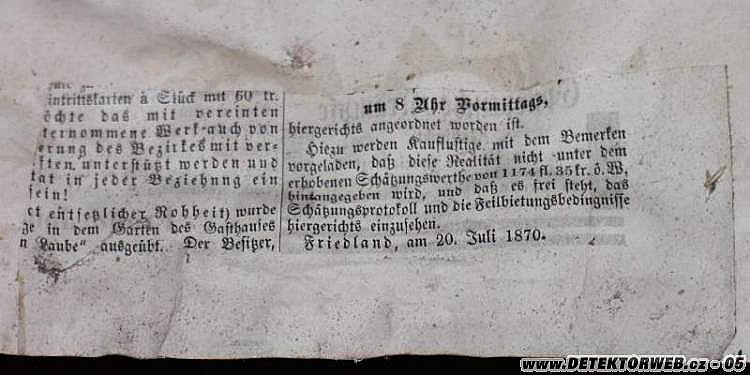 intrittskarten à Stück mit 60 kr.
öchte das mit vereinten
ternommene Werk auch von
erung des Bezirkes mit ver-
ften unterstützt werden und
tat in jeder Beziehung ein
sein!
et entsetzlicher Rohheit) wurde
ge in dem Garten des Gasthauses
n Laube" ausgeübt. Der Besitzer,
um 8 Uhr Vormittags,
hiergerichts angeordnet worden ist.
Hiezu werden Kauflustige mit dem Bemerken
vorgeladen, daß diese Realität nicht unter dem
erhobenen Schätzungswerthe von 1174 fl. 35 kr. ö. W.
hintangegeben wird, und daß es frei steht, das
Schätzungsprotokoll und die Feilbietungsbedingnisse
hiergerichts einzusehen.
Friedland, am 20. Juli 1870.
www.DETEKTORWEB.cz - 05